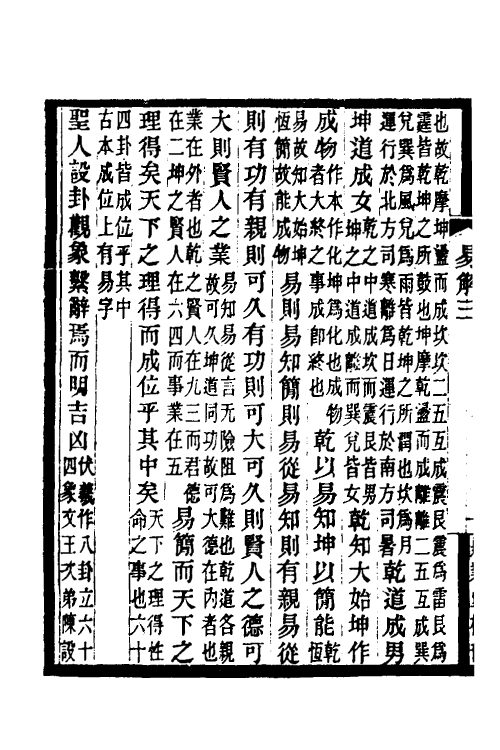 易解三
也故乾摩坤盪而成坎坎二五互成震艮震為雷艮為
霆皆乾坤之所鼓也坤摩乾盪而成離離二五互成巽
兌巽為風兌為雨皆乾坤之所潤也坎為月
運行於北方司寒離為日運行於南方司暑
乾道成男
坤道成女
乾之中道成坎而震艮皆男
坤之中道成離而巽兌皆女
乾知大始坤作
成物
作本作化坤為化也成物
者大終之事成即終也
乾以易知坤以簡能
乾
恆
易故知大始坤
恆簡故能成物
易則易知簡則易從易知則有親易從
則有功有親則可久有功則可大可久則賢人之德可
大則賢人之業
易知易從言无險阻為難也乾道各親
故可久坤道同功故可大德在內者也
業在外者也乾之賢人在九三而君德
在二坤之賢人在六四而事業在五
易簡而天下之
理得矣天下之理得而成位乎其中矣
天下之理得性
命之事也六十
四卦皆成位乎其中
古本成位上有易字
聖人設卦觀象繫辭焉而明吉凶
伏羲作八卦立六十
四象文王次弟陳設